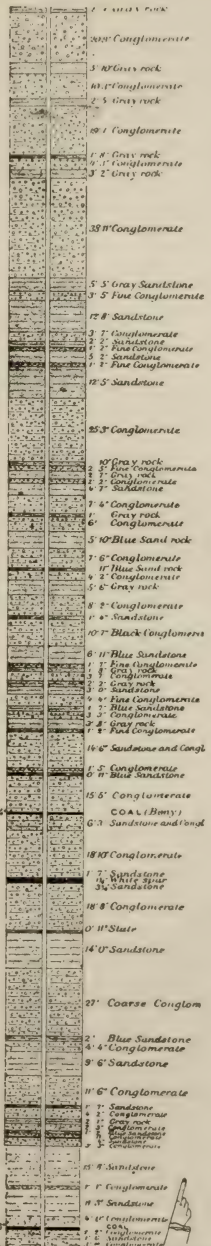 Gray rock
Conglomerate
5' 10" Gray rock
10' 1" Conglomerate
2' 5" Gray rock
19' 1" Conglomerate
1' 8" Gray rock
4' 1" Conglomerate
3' 2" Gray rock
38' 11" Conglomerate
5' 5" Gray Sandstone
3' 5" Fine Conglomerate
12' 8" Sandstone
3' 7" Conglomerate
2' 2" Sandstone
1' 2" Fine Conglomerate
5' 2" Sandstone
1' 2" Fine Conglomerate
12' 5" Sandstone
25' 3" Conglomerate
10" Gray rock
2' 5" Fine Conglomerate
2' 7" Gray rock
1' 2" Conglomerate
4' 7" Sandstone
7' 4" Conglomerate
1' Gray rock
6' Conglomerate
5' 10" Blue Sand rock
7' 6" Conglomerate
11" Blue Sand rock
4' 2" Conglomerate
5' 6" Gray rock
8' 2" Conglomerate
1' 4" Sandstone
10' 7" Black Conglomera
6' 11" Blue Sandstone
1' 7" Fine Conglomerate
1' 8" Gray rock
3' 7" Conglomerate
2' 2" Gray rock
3' 0" Sandstone
4' 4" Fine Conglomerate
1' 7" Blue Sandstone
3' 3" Conglomerate
3' 8" Gray rock
1' 2" Fine Conglomerate
14' 6" Sandstone and Congl
1' 5" Conglomerate
0' 11" Blue Sandstone
15' 5" Conglomerate
COAL (Bony)
6' 3" Sandstone and Congl
18' 10" Conglomerate
1' 7" Sandstone
White Spar
Sandstone
18' 8" Conglomerate
0' 11" Slate
14' 0" Sandstone
27' Coarse Conglom
2' Blue Sandstone
4' 4" Conglomerate
9' 6" Sandstone
11' 6" Conglomerate
1' 7" Sandstone
4' 2" Conglomerate
Gray rock
Conglomerate
Blue Sandstone
Conglomerate
Sandstone
Conglomerate
Sandstone
Conglomerate
Sandstone
Conglomerate
COAL
Conglomerate
Sandstone
Conglomerate